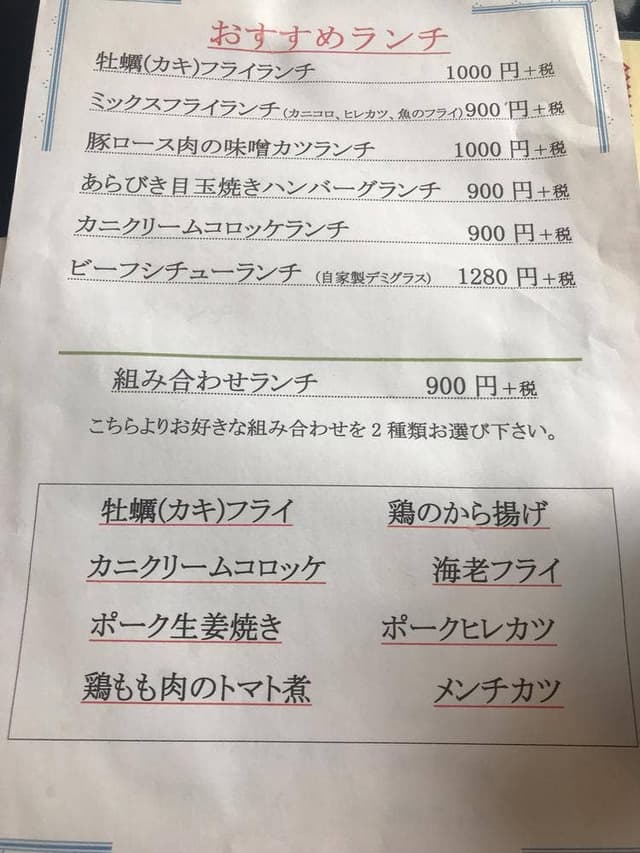 おすすめランチ
牡蠣(カキ)フライランチ 1000 円+税
ミックスフライランチ(カニコロ、ヒレカツ、魚のフライ)900 円+税
豚ロース肉の味噌カツランチ 1000 円+税
あらびき目玉焼きハンバーグランチ 900 円+税
カニクリームコロッケランチ 900 円+税
ビーフシチューランチ (自家製デミグラス) 1280 円+税
組み合わせランチ 900 円+税
こちらよりお好きな組み合わせを2種類お選び下さい。
牡蠣(カキ)フライ 鶏のから揚げ
カニクリームコロッケ 海老フライ
ポーク生姜焼き ポークヒレカツ
鶏もも肉のトマト煮 メンチカツ